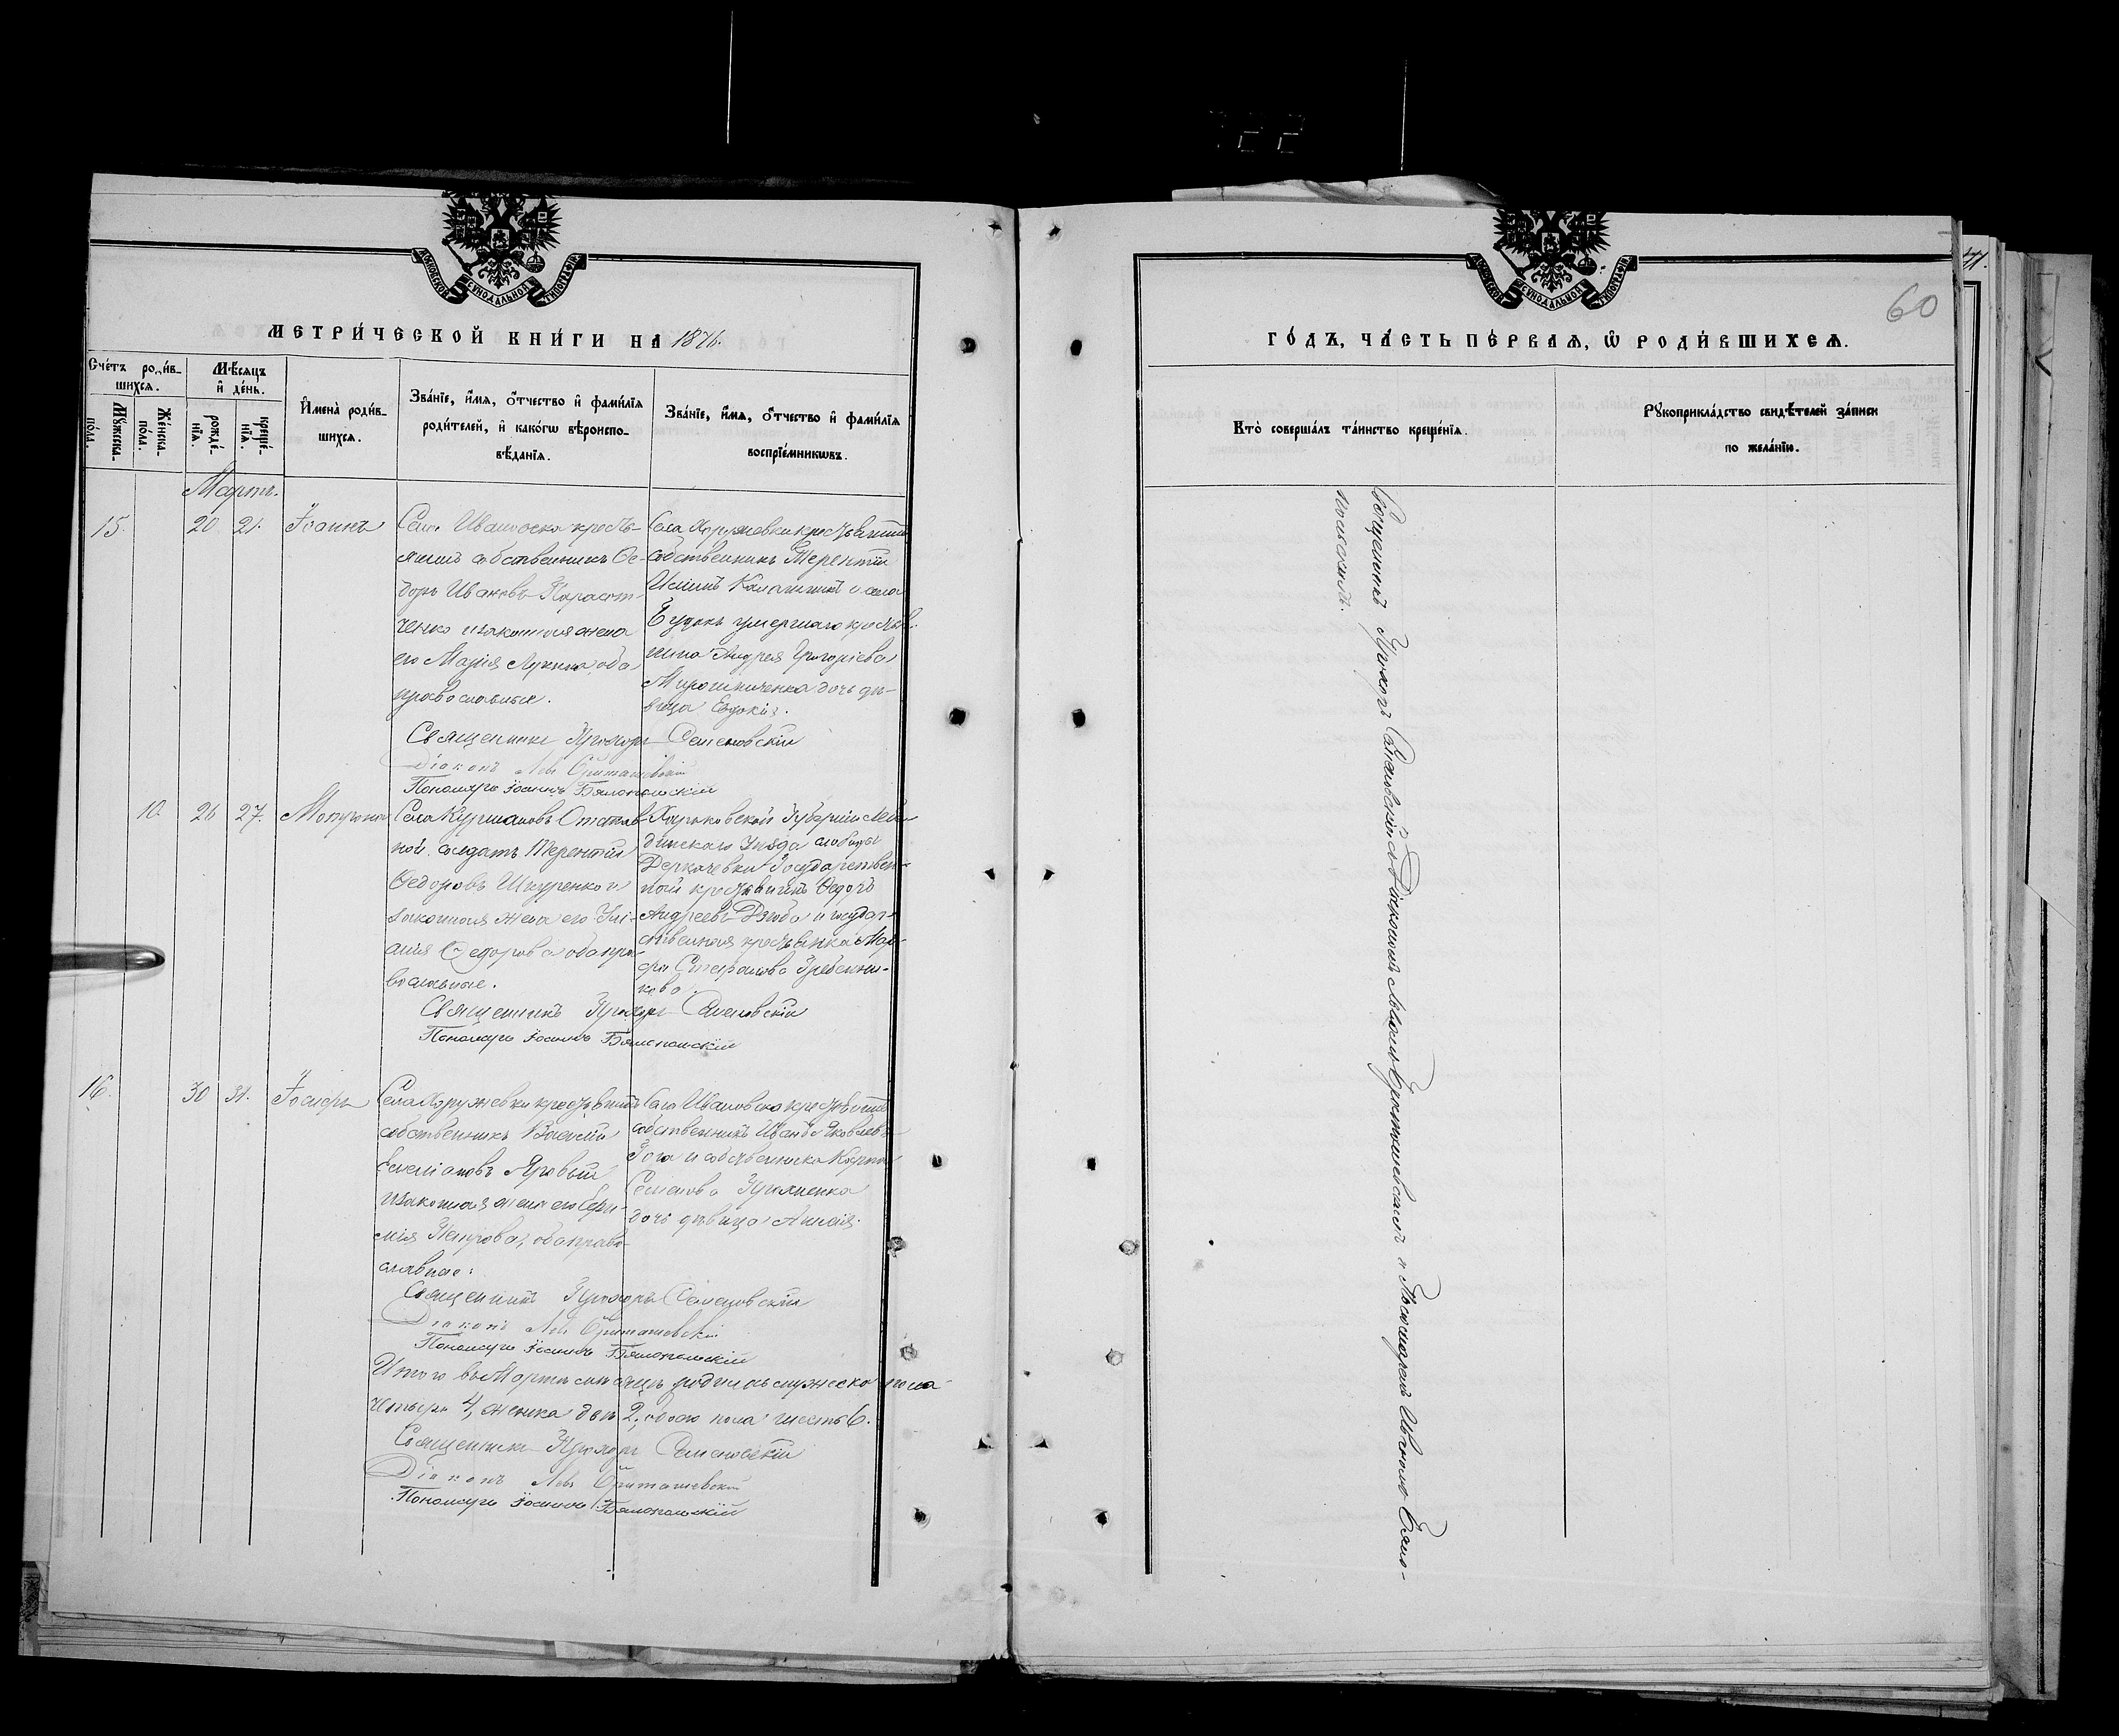 МОСКОВСКОЙ СѴНОДАЛЬНОЙ ТИПОГРАФІИ
МЕТРИ́ЧЕСКОЙ КНИ́ГИ НА 1876.
Сче́тъ роди́в-
шихсѧ.
Мꙋ́жеска-
по́ла.
Же́нска-
по́ла.
Мѣ́сѧцъ
и҆ де́нь.
рожде́-
нїѧ.
креще́-
нїѧ.
И҆мена̀ роди́в-
шихсѧ.
Зва́нїе, и҆́мѧ, ѻ҆́тчество и҆ фами́лїѧ
роди́телей, и҆ како́гѡ вѣроиспо-
вѣ́данїѧ.
Зва́нїе, и҆́мѧ, ѻ҆́тчество и҆ фами́лїѧ
воспрїе́мникѡвъ.
Мартъ.
15.
20
21.
Іоаннъ
Села Ивановска кресть-
янинъ собственникъ Ѳе-
доръ Ивановъ
и законная жена
его Марія Лукина оба
православные.
Села Хоружевки крестьянинъ
собственникъ Терентій
и села
умершаго крестья-
нина Андрея Григоріева
Мирошниченка дочь дѣ-
вица Евдокія.
Священникъ Прохоръ Семеновскій
Діаконъ Левъ
Пономарь Іоаннъ Бялопольскій
10.
26
27.
Матрона
Села Отстав-
ной солдатъ Терентій
Ѳедоровъ Шкуренко и
законная жена его Улі-
анія Ѳедорова оба пра-
вославные.
Харьковской Губерніи Лебе-
динскаго Уѣзда слободы
Деркачевки Государствен-
ный крестьянинъ Ѳедоръ
Андреевъ Дзюба и государ-
ственная крестьянка Мар-
фа Стефанова Гребенни-
кова.
Священникъ Прохоръ Семеновскій
Пономарь Іоаннъ Бялопольскій
16.
30
31.
Іосифъ
Села Хоружевки крестьянинъ
собственникъ Василій
Емеліановъ Яровый
и законная жена его Ефи-
мія Петрова, оба право-
славные:
Села Ивановска крестьянинъ
собственникъ Иванъ Яковлевъ
и собственника Карпа
Семенова
дочь дѣвица Анисія.
Священникъ Прохоръ Семеновскій
Діаконъ Левъ
Пономарь Іоаннъ Бялопольскій
Итого въ Мартѣ мѣсяцѣ родилось мужеска пола
четыре 4, женска два 2, обоего пола шесть 6.
Священникъ Прохоръ Семеновскій
Діаконъ Левъ
Пономарь Іоаннъ Бялопольскій
МОСКОВСКОЙ СѴНОДАЛЬНОЙ ТИПОГРАФІИ
60
ГО́ДЪ, ЧА́СТЬ ПЕ́РВАѦ, Ѡ҆ РОДИ́ВШИХСѦ.
Кто̀ соверша́лъ та́инство креще́нїѧ.
Рꙋкоприкла́дство свидѣ́телей за́писи
по жела́нїю.
Священникъ Прохоръ Семеновскій съ Діакономъ Львомъ и Пономаремъ Иваномъ Бяло-
польскимъ.